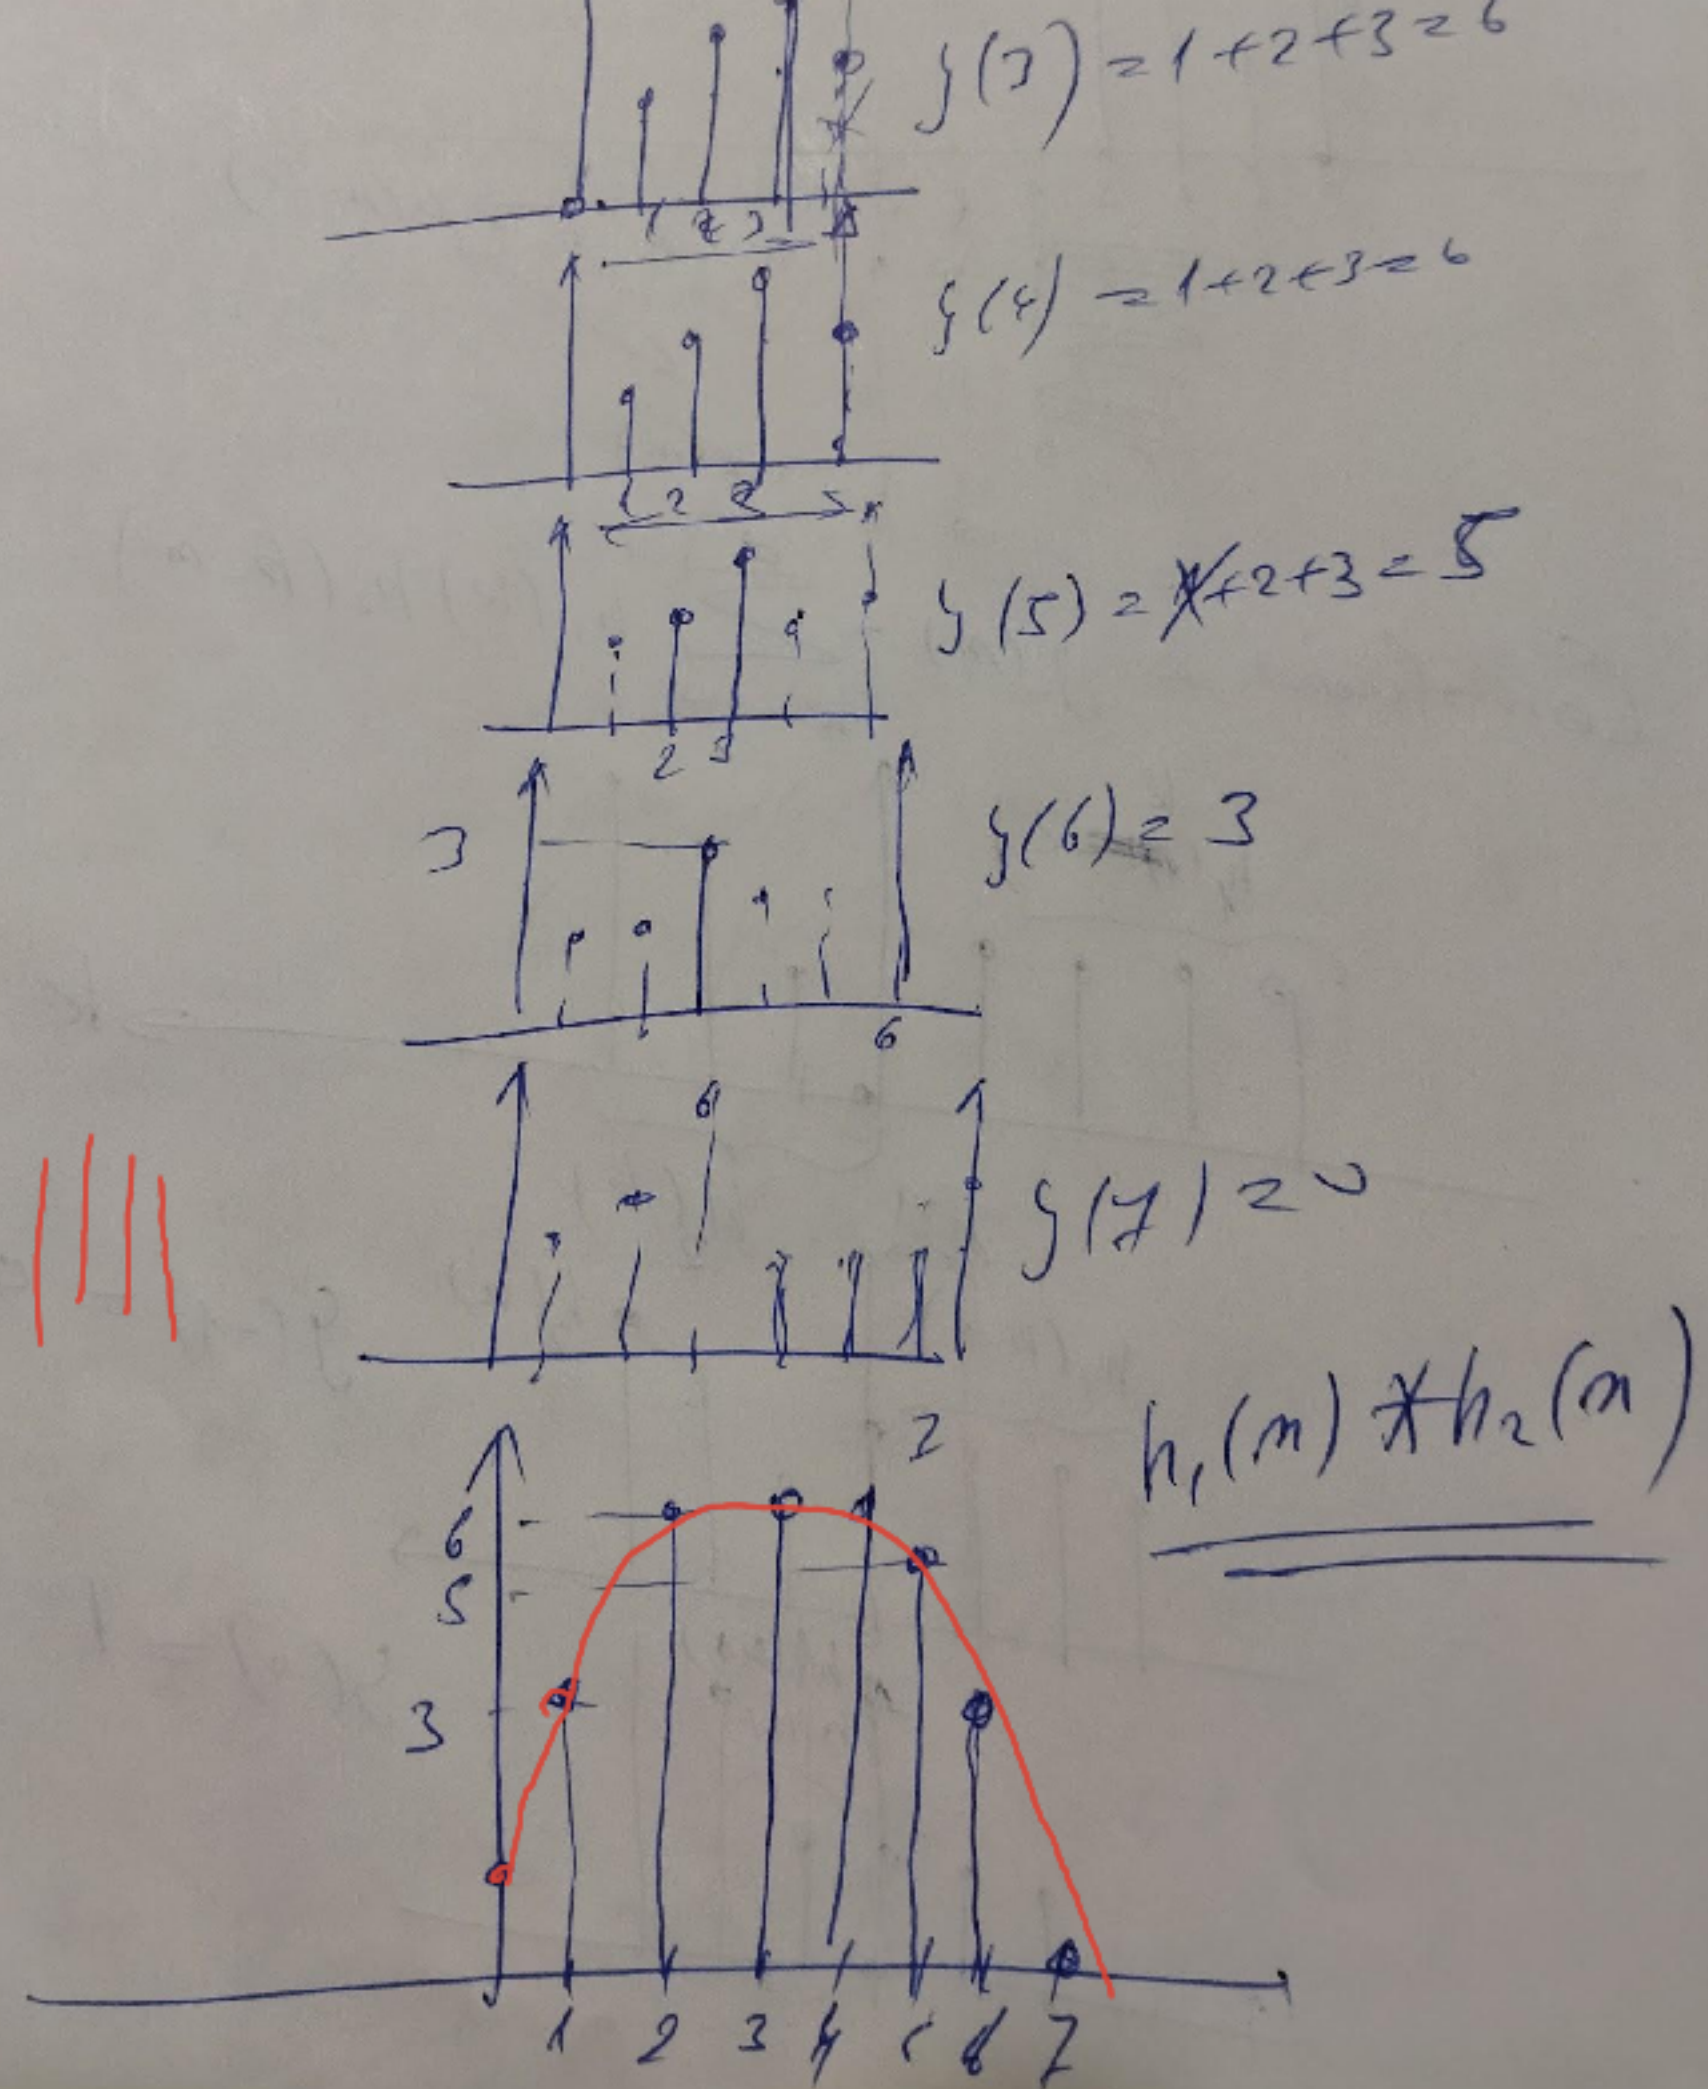 y(3) = 1+2+3=6
1 2 3
y(4) = 1+2+3=6
1 2 3
y(5) = 1+2+3=5
2 3
3
y(6) = 3
6
y(7) = 0
7
h₁(n) * h₂(n)
6
5
3
1 2 3 4 5 6 7